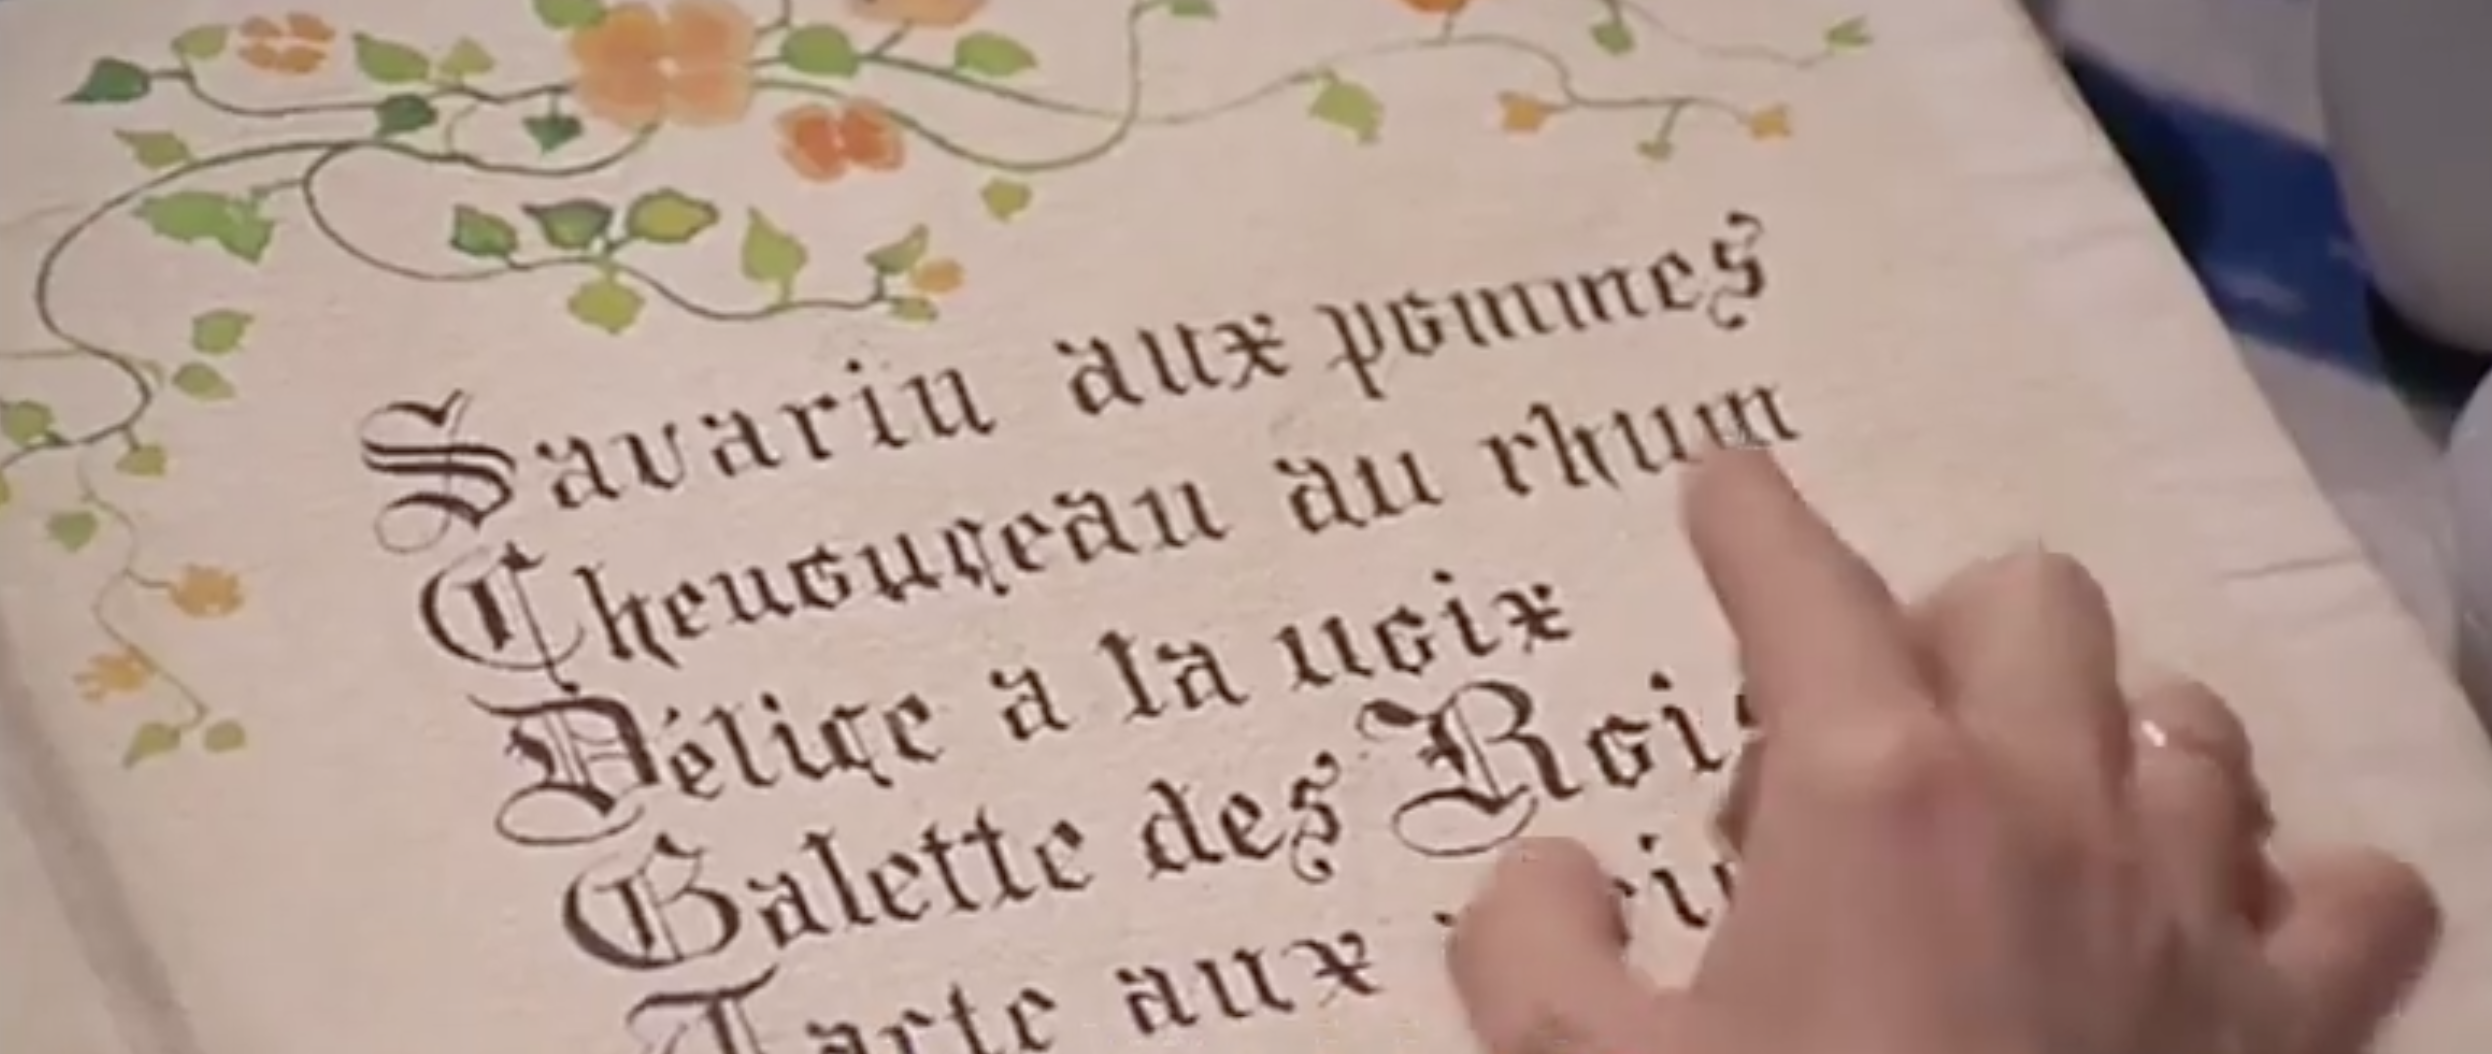 Savarin aux pommes
Chenonceau au rhum
Délice à la noix
Galette des Rois
Tarte aux